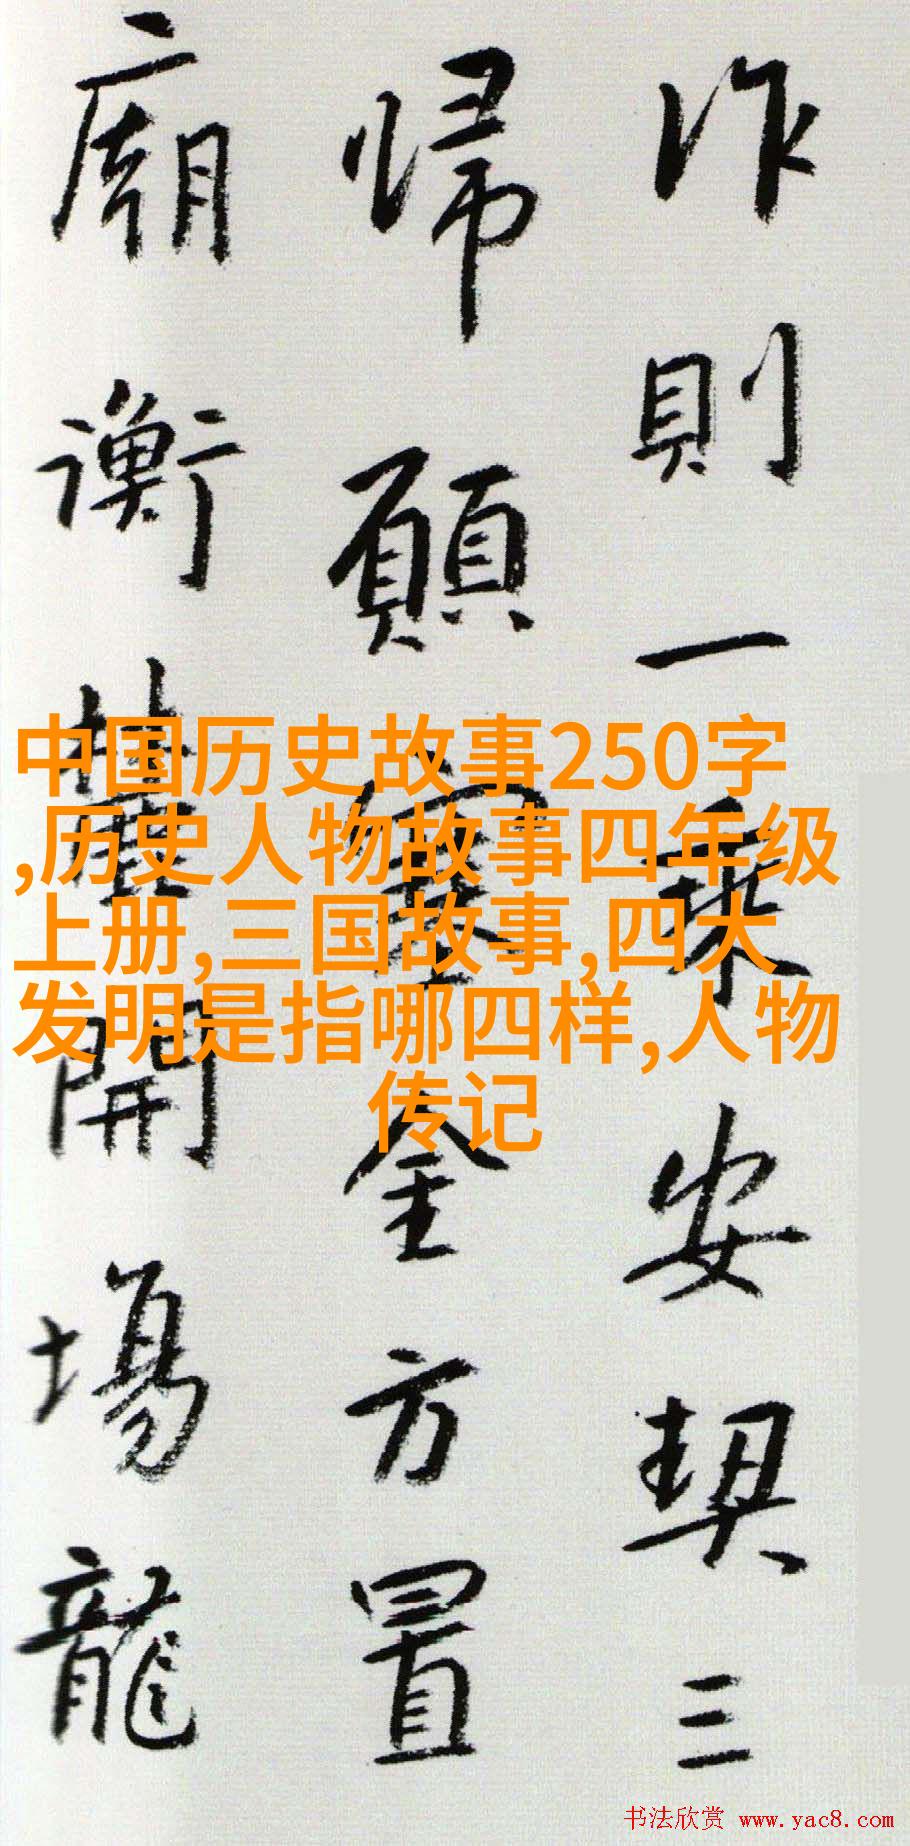 作則一乘安契三
帰願全方置
廟衡開場龍
中国历史故事250字
,历史人物故事四年级
上册,三国故事,四大
发明是指哪四样,人物
传记
书法欣赏 www.yac8.com